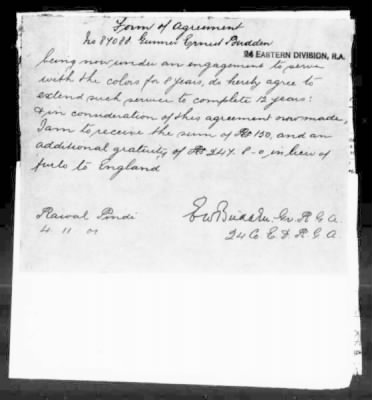 Form of Agreement
No 84088 Gunner Ernest Budden
24 EASTERN DIVISION, R.A.
being now under an engagement to serve
with the colors for 8 years, do hereby agree to
extend such service to complete 12 years:
& in consideration of this agreement now made,
I am to receive the sum of Rs 150, and an
additional gratuity of Rs 247. 8-0, in lieu of
furlo to England
Rawal Pindi
4 11 01
E W Budden Gr. R. G. A.
24 Co. E. D. R. G. A.